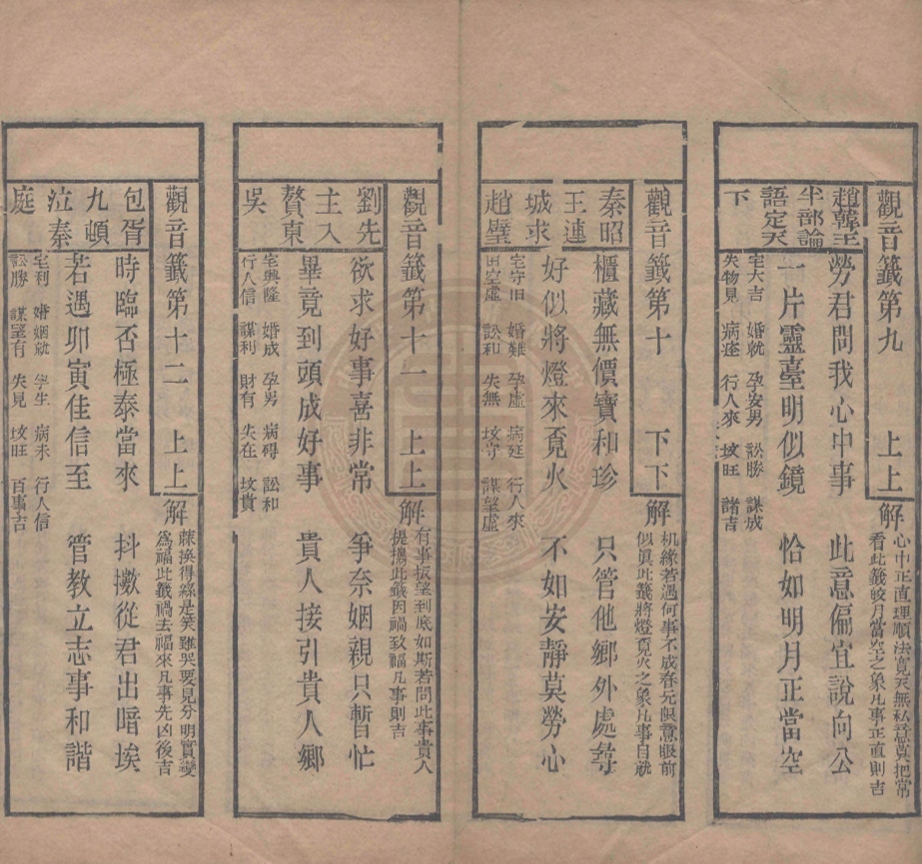 觀音籤第九 上上
趙韓王
半部論
語定天
下
解
心中正直理順法寬天無私意莫把常
看此籤皎月當空之象凡事正直則吉
勞君問我心中事 此意偏宜說向公
一片靈臺明似鏡 恰如明月正當空
宅大吉 婚就 孕安男 訟勝 謀成
失物見 病痊 行人來 坟旺 諸吉
觀音籤第十 下下
秦昭
王連
城求
趙璧
解
机緣若遇何事不成春元限意眼前
似眞此籤將燈覓火之象凡事自就
櫃藏無價寶和珍 只管他鄉外處尋
好似將燈來覓火 不如安靜莫勞心
宅守旧 婚難 孕虛 病延 行人來
田空虛 訟和 失無 坟守 謀望虛
觀音籤第十一 上上
劉先
主入
贅東
吳
解
有事扳望到底如斯若問此事貴人
提攜此籤因禍致福凡事則吉
欲求好事喜非常 爭奈姻親只暫忙
畢竟到頭成好事 貴人接引貴人鄉
宅興隆 婚成 孕男 病碍 訟和
行人信 謀利 財有 失在 坟貴
觀音籤第十二 上上
包胥
九頓
泣秦
庭
解
蔴換得絲是笑雖哭要見分明實變
爲福此籤禍去福來凡事先凶後吉
時臨否極泰當來 抖擻從君出暗埃
若遇卯寅佳信至 管教立志事和諧
宅利 婚姻就 孕生 病未 行人信
訟勝 謀望有 失見 坟旺 百事吉